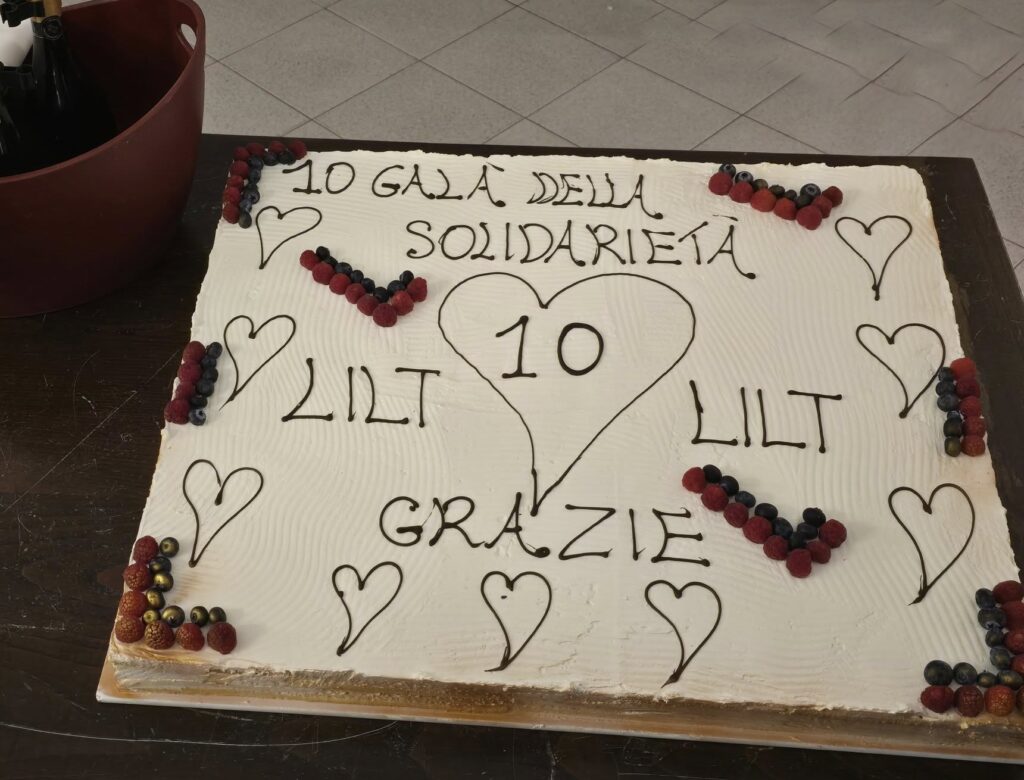 10 GALÀ DELLA
SOLIDARIETÀ
10
LILT
LILT
GRAZIE